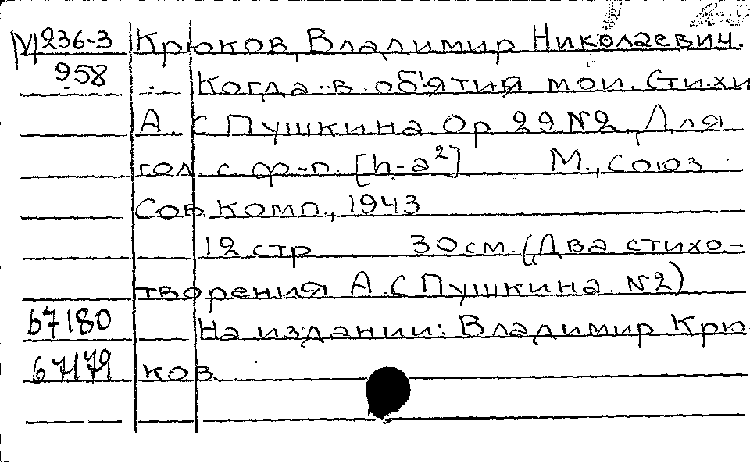 М236-3 Крюков, Владимир Николаевич.
958 Когда в объятия мои. Стихи
А. С Пушкина Ор 29 №2. Для
гол. с ф-п. [h-a²] М., Союз
Сов. комп., 1943
12 стр 30см. (Два стихо-
творения А.С Пушкина №2)
67180 На издании: Владимир Крю-
67179 ков